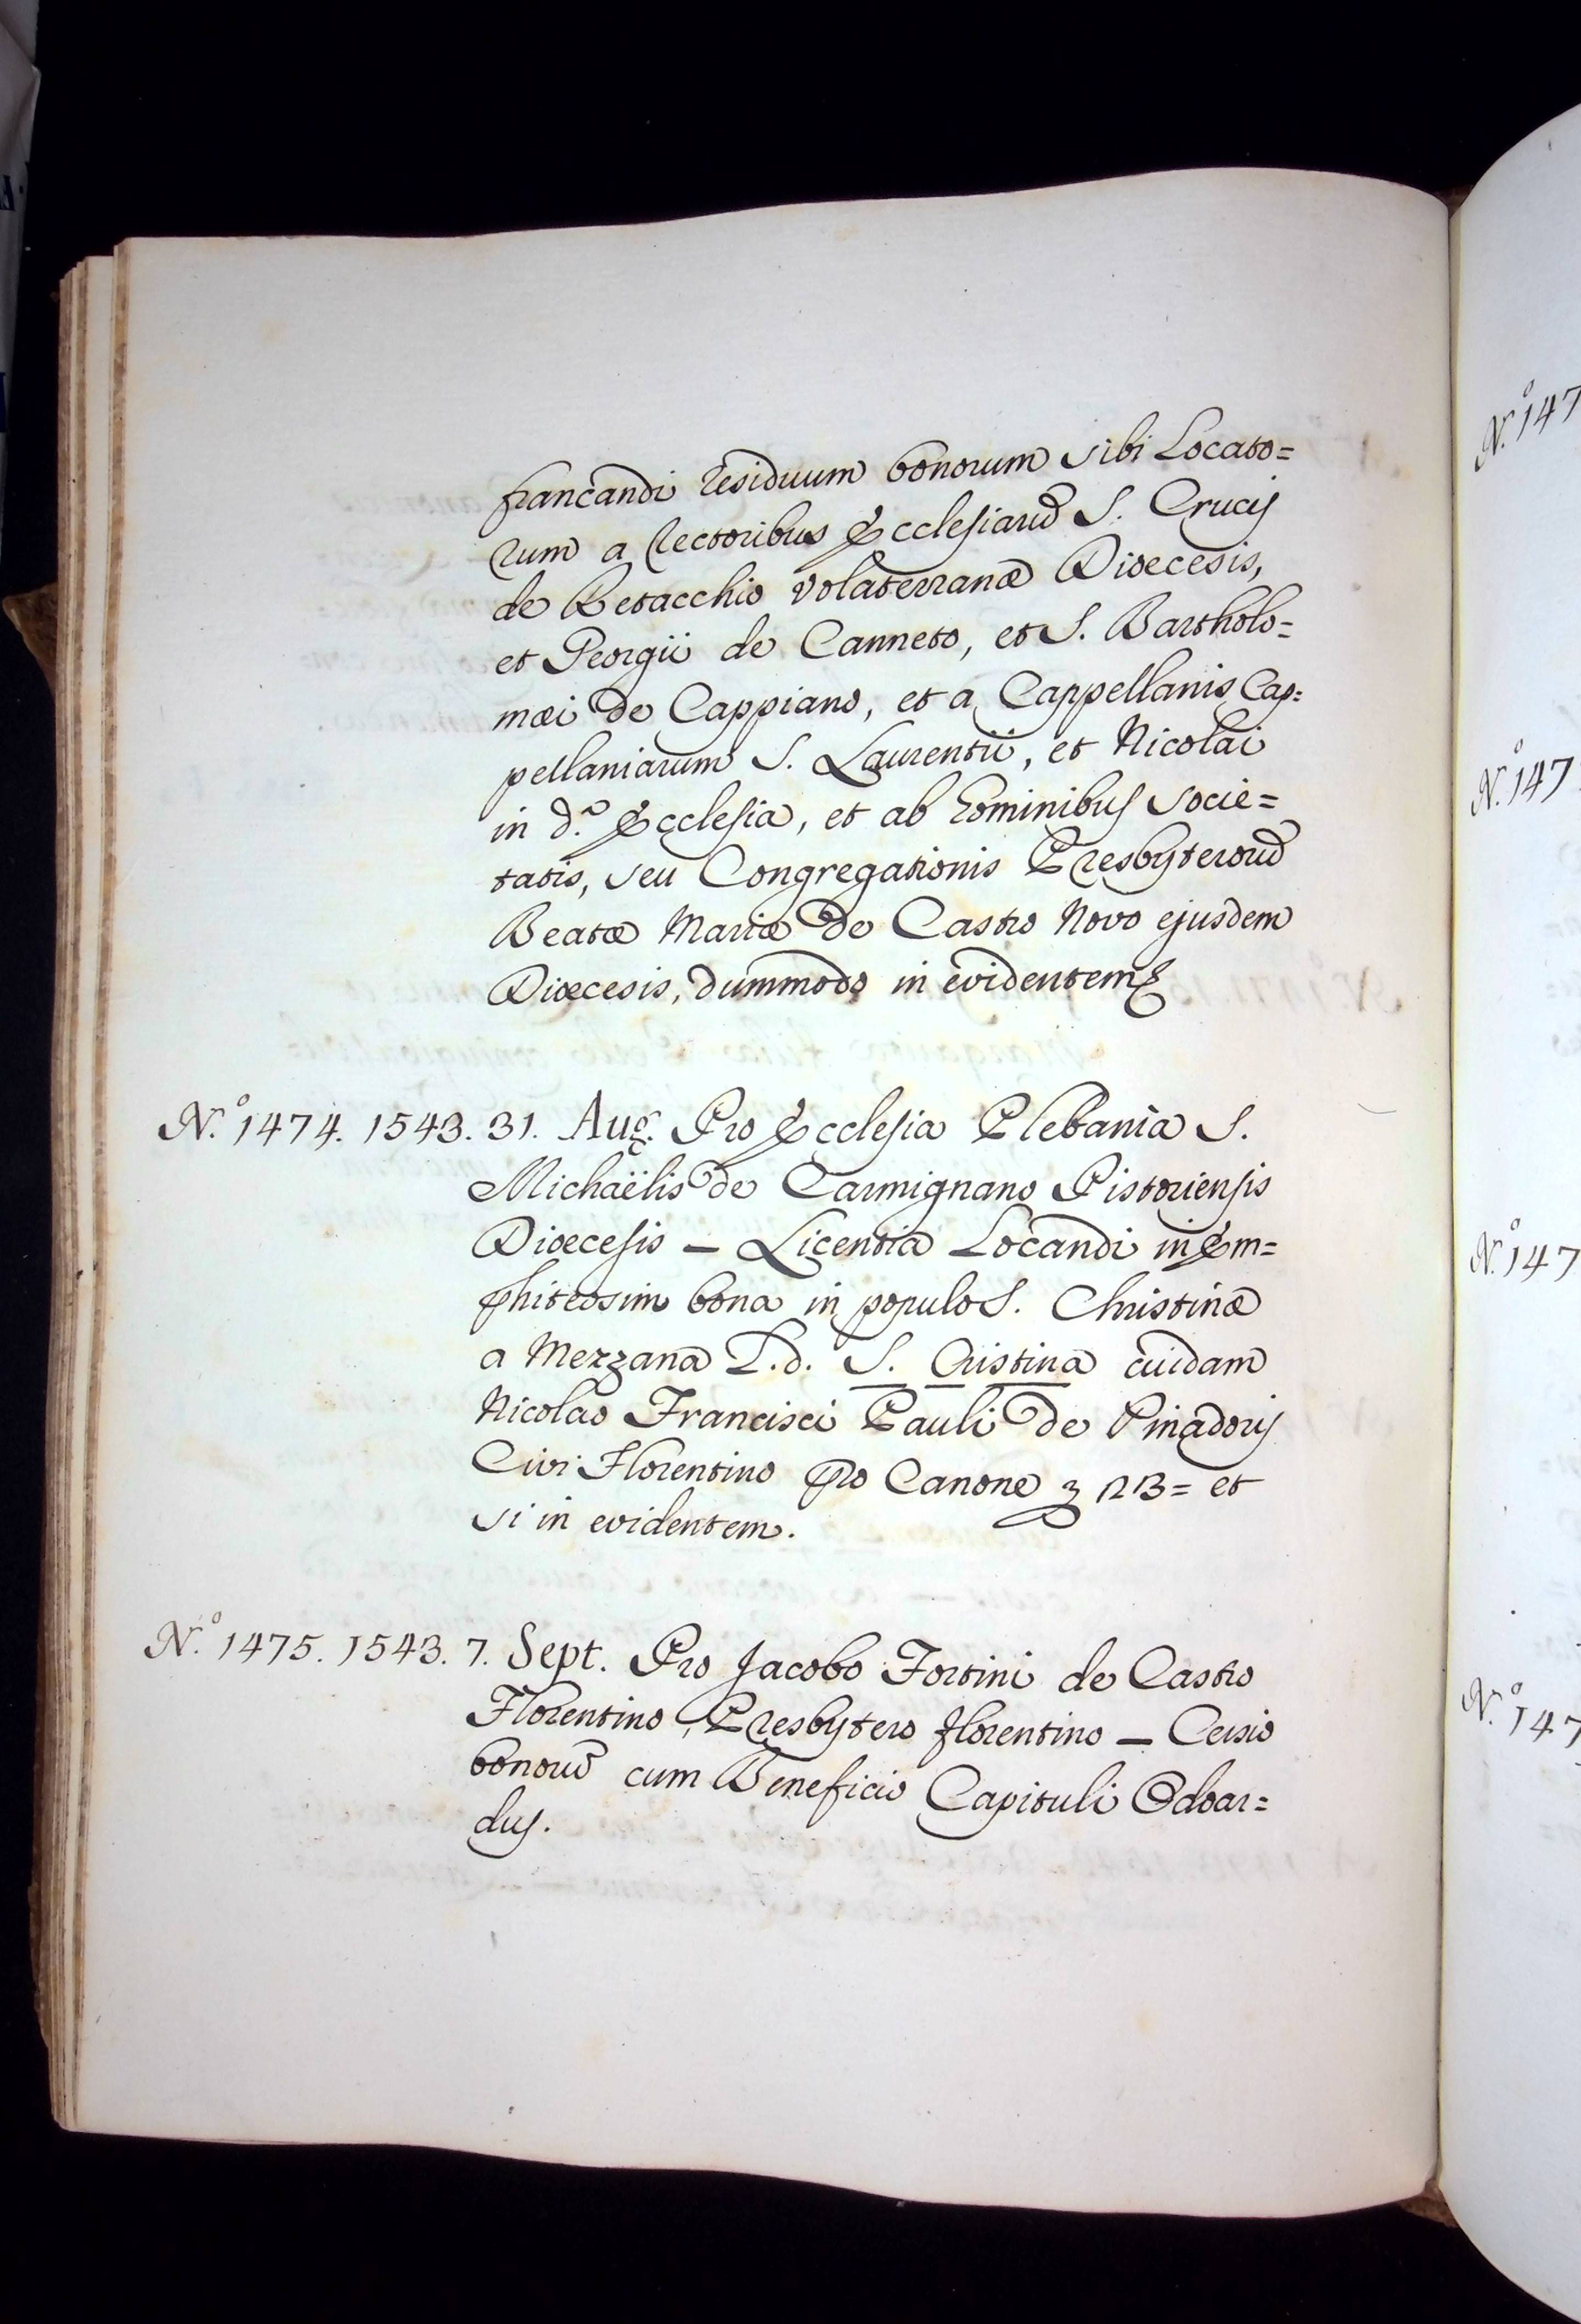 francandi residuum bonorum sibi Locato=
rum a Rectoribus Ecclesiarũ S. Crucis
de Betacchio Volaterranæ Diœcesis,
et Georgii de Canneto, et S. Bartholo=
mæi de Cappiano, et a Cappellanis Cap=
pellaniarum S. Laurentii, et Nicolai
in d.ª Ecclesia, et ab hominibus socie=
tatis, seu Congregationis Presbyterorũ
Beatæ Mariæ de Castro Novo ejusdem
Diœcesis, dummodo in evidentem
N.º 1474. 1543. 31. Aug. Pro Ecclesia Plebania S.
Michaëlis de Carmignano Pistoriensis
Diœcesis – Licentia Locandi in Em=
phiteosim bona in populo S. Christinæ
a Mezzana L.d. S. Cristina cuidam
Nicolao Francisci Pauli de Pinadoris
Civi Florentino pro Canone et
si in evidentem.
N.º 1475. 1543. 7. Sept. Pro Jacobo Fortini de Castro
Florentino, Presbytero florentino – Cessio
bonorũ cum Beneficio Capituli Odoar=
dus.
N.º 147
N.º 147
N.º 147
N.º 147